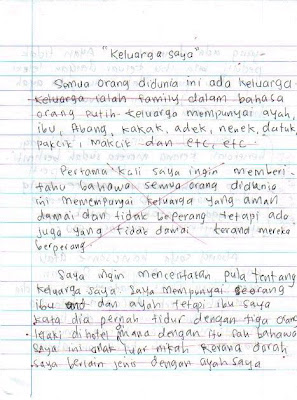 "Keluarga saya"
Semua orang didunia ini ada keluarga.
Keluarga ialah family dalam bahasa
orang putih. Keluarga mempunyai ayah,
ibu, Abang, kakak, adek, nenek, datuk,
pakcik, makcik dan etc, etc
Pertama kali saya ingin memberi
tahu bahawa semua orang didunia
ini memempunyai keluarga yang aman
damai dan tidak beperang tetapi ada
juga yang tidak damai kerana mereka
berperang.
Saya ingin menceritakan pula tentang
keluarga saya. Saya mempunyai seorang
ibu dan ayah tetapi ibu saya
kata dia pernah tidur dengan tiga orang
lelaki dihotel mana dengan itu sah bahawa
saya ini anak luar nikah kerana darah
saya berlain jenis dengan ayah saya